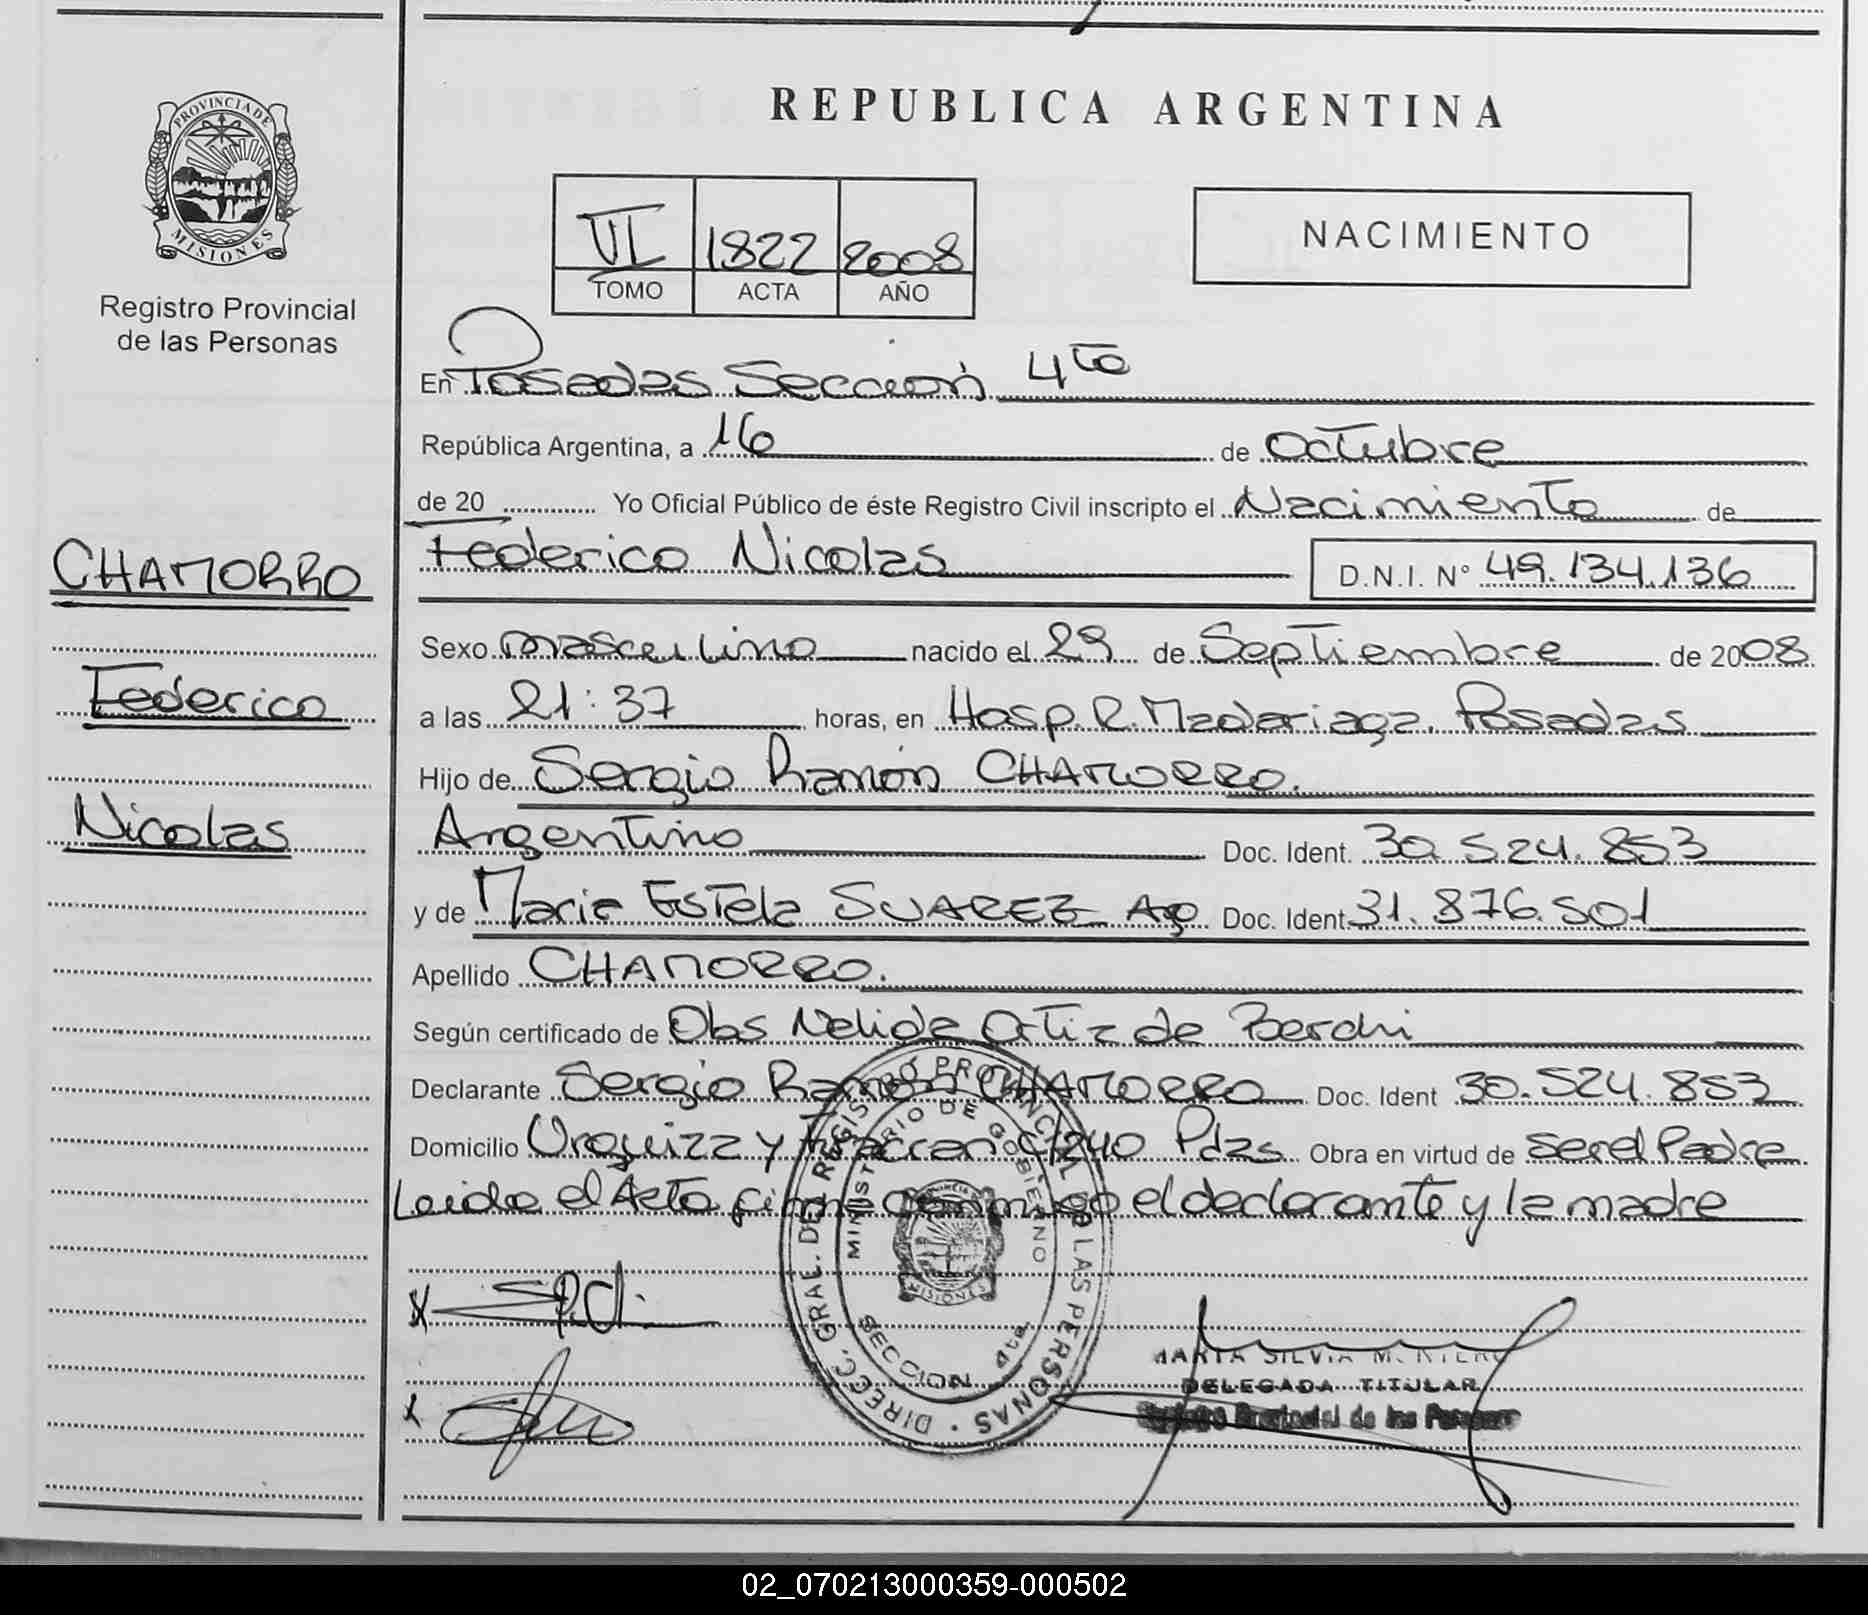 PROVINCIA DE
MISIONES
Registro Provincial
de las Personas
CHAMORRO
Federico
Nicolas
REPUBLICA ARGENTINA
VI 1822 2008
TOMO ACTA AÑO
NACIMIENTO
En Posadas Sección 4ta
República Argentina, a 16 de Octubre
de 20 Yo Oficial Público de éste Registro Civil inscripto el Nacimiento de
Federico Nicolas D.N.I. N° 49.134.136
Sexo masculino nacido el 29 de Septiembre de 2008
a las 21:37 horas, en Hosp. R. Madariaga. Posadas
Hijo de Sergio Ramón CHAMORRO.
Argentino Doc. Ident. 30.524.853
y de Maria Estela SUAREZ Ag Doc. Ident. 31.876.501
Apellido CHAMORRO.
Según certificado de Obs Nelida Ortiz de Berchi
Declarante Sergio Ramón CHAMORRO Doc. Ident 30.524.853
Domicilio Urquiza y C/240 Pdas Obra en virtud de ser el Padre
Leida el Acta firma conmigo el declarante y la madre
DIRECC. GRAL. DE REGISTRO PROVINCIAL DE LAS PERSONAS
MINISTERIO DE GOBIERNO
MISIONES
SECCION 4ta
SILVIA
DELEGADA TITULAR
Registro Provincial de las Personas
02_070213000359-000502